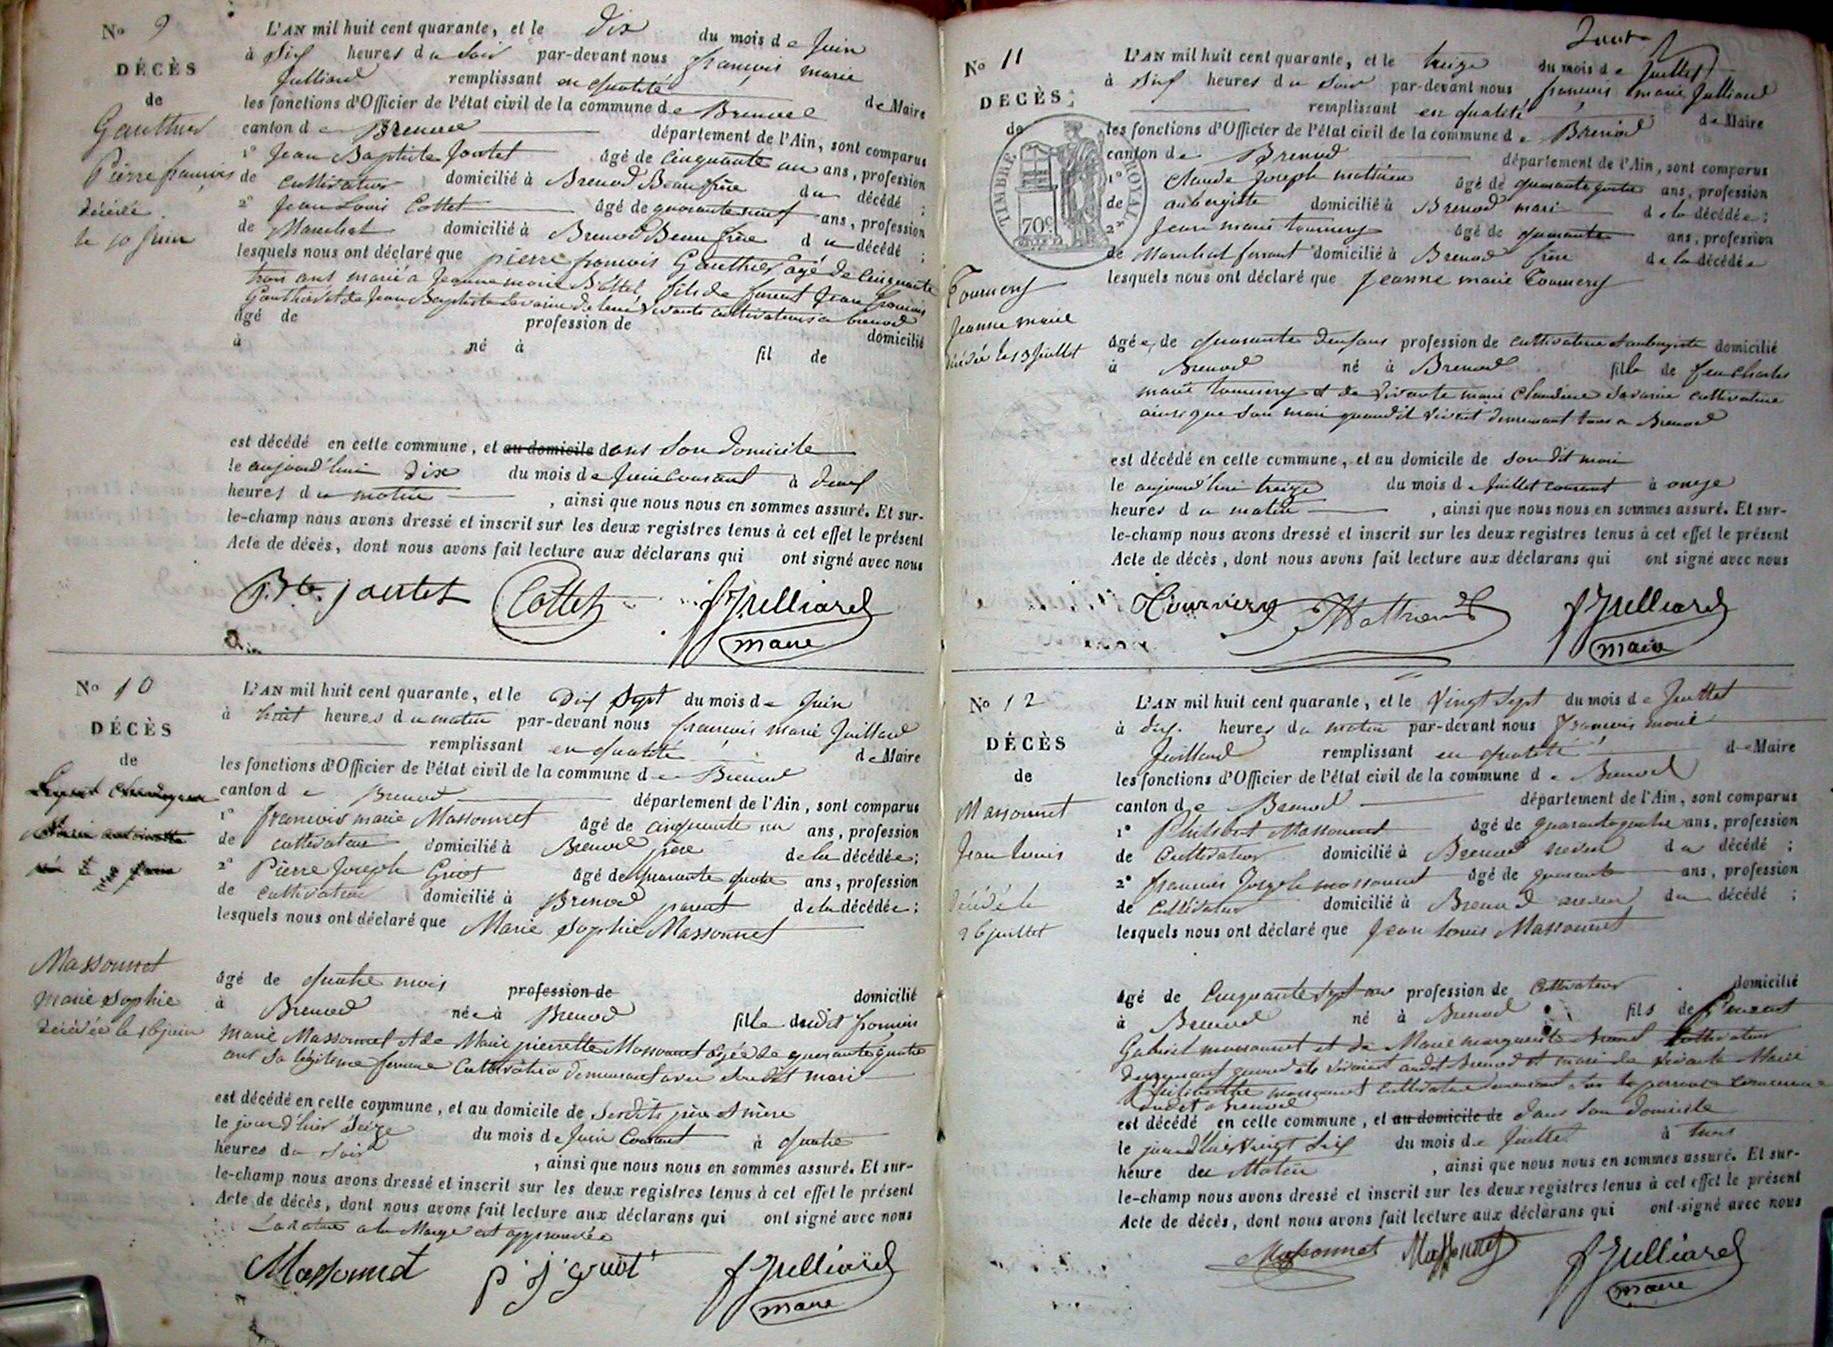 No 9
DÉCÈS
de
Gauthier
Pierre françois
décédé
le 10 juin
L'AN mil huit cent quarante, et le dix du mois de Juin
à Six heures du Soir par-devant nous françois marie
Julliard remplissant en qualité de Maire
les fonctions d'Officier de l'état civil de la commune de Brenod
canton de Brenod département de l'Ain, sont comparus
1° Jean Baptiste Joutet âgé de Cinquante un ans, profession
de cultivateur domicilié à Brenod Beau frère du décédé ;
2° Jean Louis Cottet âgé de quarante neuf ans, profession
de Marechal domicilié à Brenod Beau frère du décédé ;
lesquels nous ont déclaré que pierre francois Gauthier agé de Cinquante
trois ans marié a Jeanne marie fils de Jean francois
âgé de profession de domicilié
à né à fil de
est décédé en cette commune, et au domicile dans Son domicile
le aujourd'hui dix du mois de Juin courant à
heures du matin , ainsi que nous nous en sommes assuré. Et sur-
le-champ nous avons dressé et inscrit sur les deux registres tenus à cet effet le présent
Acte de décès, dont nous avons fait lecture aux déclarans qui ont signé avec nous
Bte joutet Cottet f Julliard
maire
No 10
DÉCÈS
de
Massonnet
marie Sophie
décédée le 16 juin
L'AN mil huit cent quarante, et le Dix Sept du mois de Juin
à huit heures du matin par-devant nous françois marie Juillard
remplissant en qualité de Maire
les fonctions d'Officier de l'état civil de la commune de Brenod
canton de Brenod département de l'Ain, sont comparus
1° francois marie Massonnet âgé de cinquante un ans, profession
de cultivateur domicilié à Brenod père de la décédée ;
2° Pierre Joseph Guiot âgé de quarante quatre ans, profession
de cultivateur domicilié à Brenod parent de la décédée ;
lesquels nous ont déclaré que Marie Sophie Massonnet
âgé de quatre mois profession de domicilié
à Brenod née à Brenod fille dudit francois
marie Massonnet et de Marie pierrette Massonnet agée de quarante quatre
ans Sa légitime femme Cultivatrice demeurant avec Son dit mari
est décédé en cette commune, et au domicile de Sesdits père et mère
le jour d'hier Seize du mois de Juin Courant à quatre
heures du Soir , ainsi que nous nous en sommes assuré. Et sur-
le-champ nous avons dressé et inscrit sur les deux registres tenus à cet effet le présent
Acte de décès, dont nous avons fait lecture aux déclarans qui ont signé avec nous
La rature a la Marge est approuvée
Massonnet p j guiot f Julliard
maire
No 11
DÉCÈS
de
TIMBRE ROYAL
70c
Tournery
Jeanne marie
décédée le 13 Juillet
L'AN mil huit cent quarante, et le treize du mois de Juillet
à Six heures du Soir par-devant nous francois marie Julliard
remplissant en qualité de Maire
les fonctions d'Officier de l'état civil de la commune de Brenod
canton de Brenod département de l'Ain, sont comparus
1° Claude Joseph mathieu âgé de quarante quatre ans, profession
de aubergiste domicilié à Brenod mari de la décédée ;
2° Jean marie tournery âgé de quarante ans, profession
de Marechal ferrant domicilié à Brenod frère de la décédée
lesquels nous ont déclaré que Jeanne marie Tournery
âgée de quarante deux ans profession de cultivatrice et aubergiste domicilié
à Brenod né à Brenod fille de feu Charles
marie tournery et de vivante marie Claudine Savarin cultivatrice
ainsi que Son mari quand il vivait demeurant tous a Brenod
est décédé en cette commune, et au domicile de son dit mari
le aujourd'hui treize du mois de Juillet courant à onze
heures du matin , ainsi que nous nous en sommes assuré. Et sur-
le-champ nous avons dressé et inscrit sur les deux registres tenus à cet effet le présent
Acte de décès, dont nous avons fait lecture aux déclarans qui ont signé avec nous
Tournery Mathieu f Julliard
maire
No 12
DÉCÈS
de
Massonnet
Jean Louis
décédé le
26 juillet
L'AN mil huit cent quarante, et le Vingt Sept du mois de Juillet
à dix heures du matin par-devant nous francois marie
Juillard remplissant en qualité de Maire
les fonctions d'Officier de l'état civil de la commune de Brenod
canton de Brenod département de l'Ain, sont comparus
1° Philibert Massonnet âgé de quarante quatre ans, profession
de Cultivateur domicilié à Brenod neveu du décédé ;
2° francois Joseph massonnet âgé de quarante ans, profession
de Cultivateur domicilié à Brenod neveu du décédé ;
lesquels nous ont déclaré que Jean Louis Massonnet
âgé de Cinquante Sept ans profession de Cultivateur domicilié
à Brenod né à Brenod fils de
Gabriel massonnet et de Marie marguerite Cultivateur
demeurant quand ils vivaient audit Brenod et mari de vivante Marie
massonnet cultivatrice demeurant commune
dudit Brenod
est décédé en cette commune, et au domicile de dans Son domicile
le jour d'hier Vingt Six du mois de Juillet à trois
heure du Matin , ainsi que nous nous en sommes assuré. Et sur-
le-champ nous avons dressé et inscrit sur les deux registres tenus à cet effet le présent
Acte de décès, dont nous avons fait lecture aux déclarans qui ont signé avec nous
Massonnet Massonnet f Julliard
maire